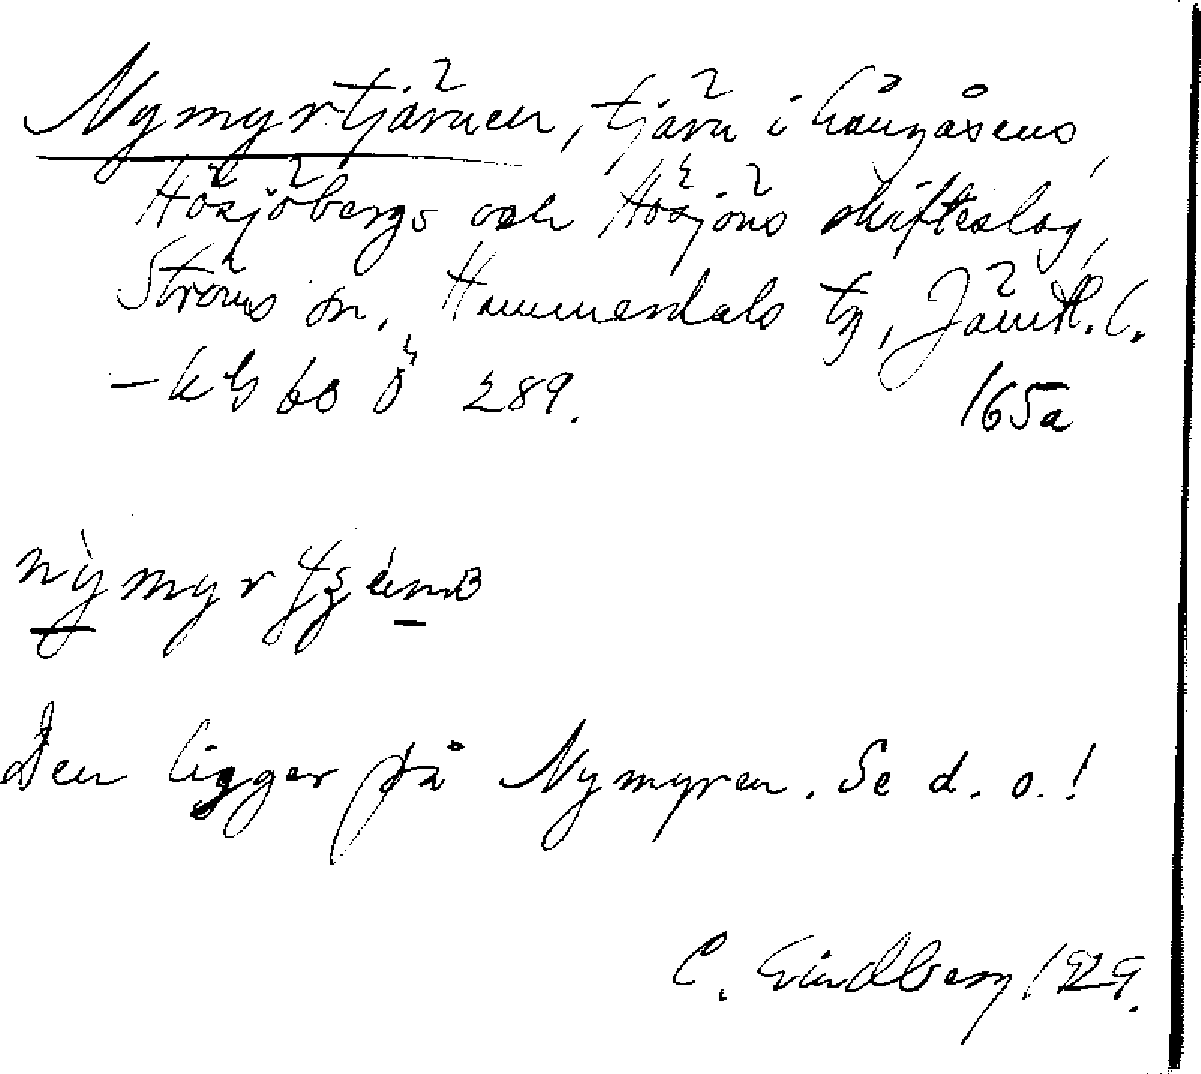 Nymyrtjärnen, tjärn i Långåsens,
Högsjöbergs och Högsjöns skifteslag,
Ströms sn, Hammerdals tg, Jämtl. l.
289.
165a
Den ligger på Nymyren. Se d. o.!
C. Lindberg 1929.